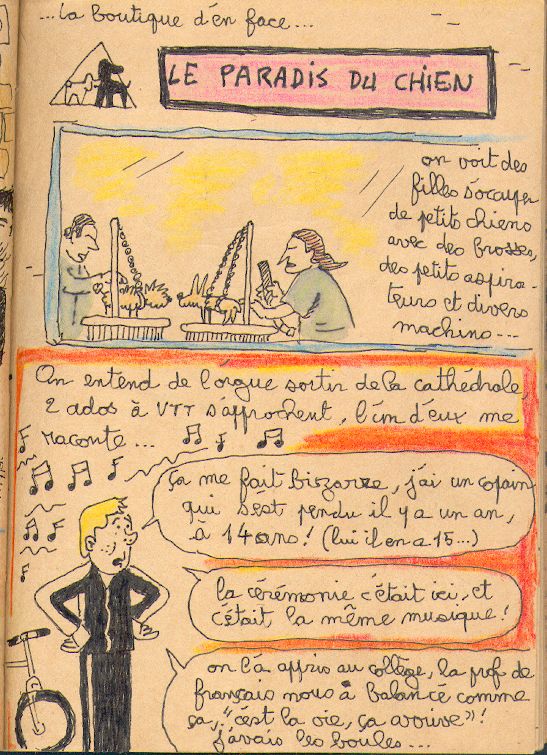 ...La boutique d'en face...
LE PARADIS DU CHIEN
on voit des
filles s'occuper
de petits chiens
avec des brosses,
des petits aspira-
teurs et divers
machins...
On entend de l'orgue sortir de la cathédrale,
2 ados à VTT s'approchent, l'un d'eux me
raconte...
ça me fait bizarre, j'ai un copain
qui s'est pendu il y a un an,
à 14 ans! (lui il en a 15...)
la cérémonie c'était ici, et
c'était, la même musique!
on l'a appris au collège, la prof de
français nous a balancé comme
ça, "c'est la vie, ça arrive"!
j'avais les boules...